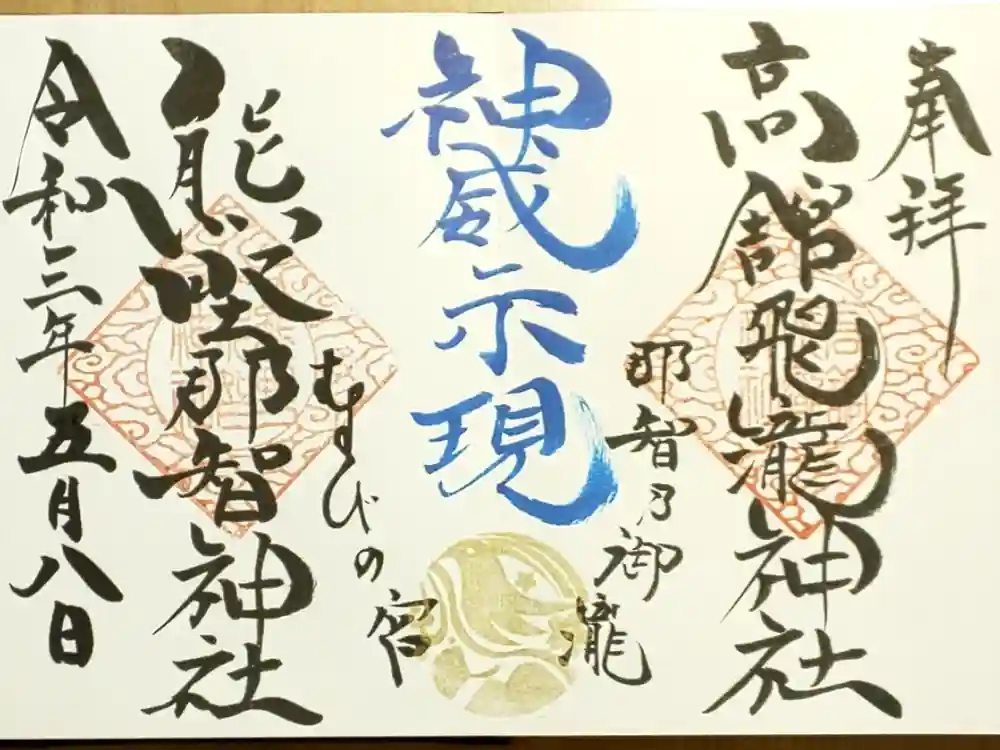 奉拝
高舘飛瀧神社
那智乃御瀧
神威示現
むすびの宮
熊野那智神社
令和三年
五月八日